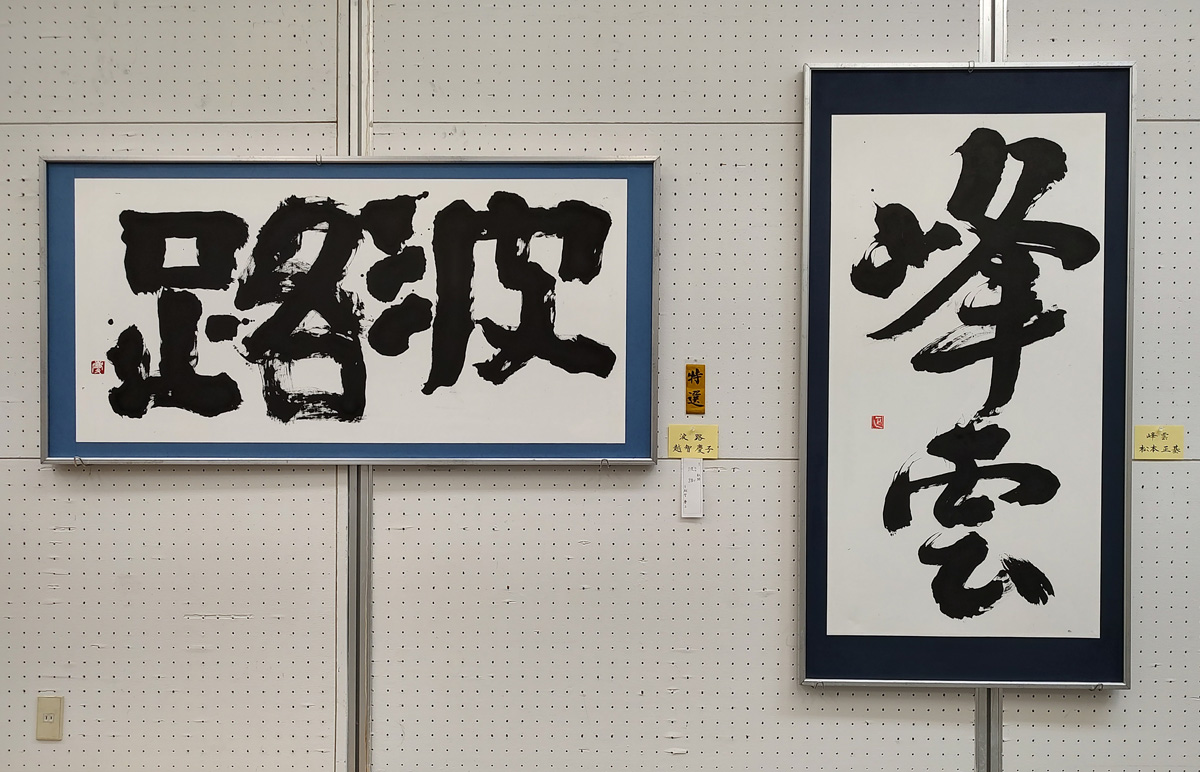 波路
特選
波路
越智慶子
峰雲
峰雲
松本正基